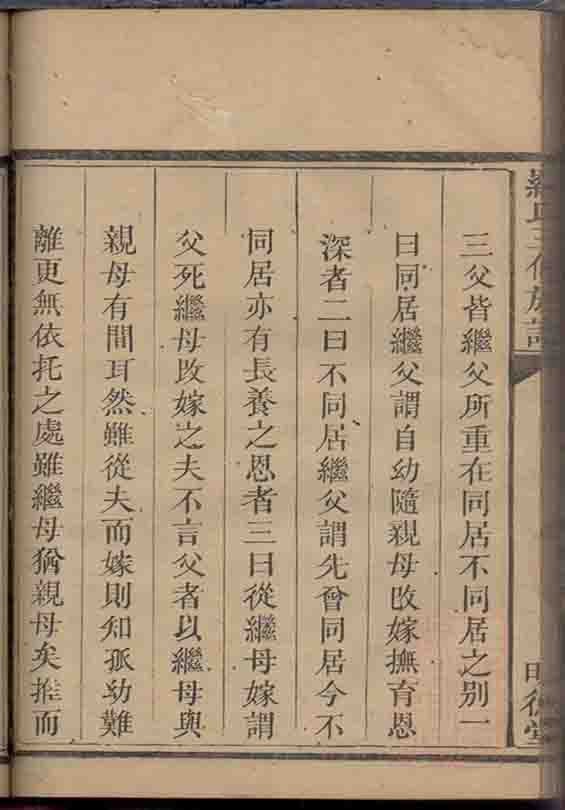 三父皆繼父所重在同居不同居之別一
曰同居繼父謂自幼隨親母改嫁撫育恩
深者二曰不同居繼父謂先曾同居今不
同居亦有長養之恩者三曰從繼母嫁謂
父死繼母改嫁之夫不言父者以繼母與
親母有間耳然雖從夫而嫁則知孤幼難
離更無依托之處雖繼母猶親母矣推而